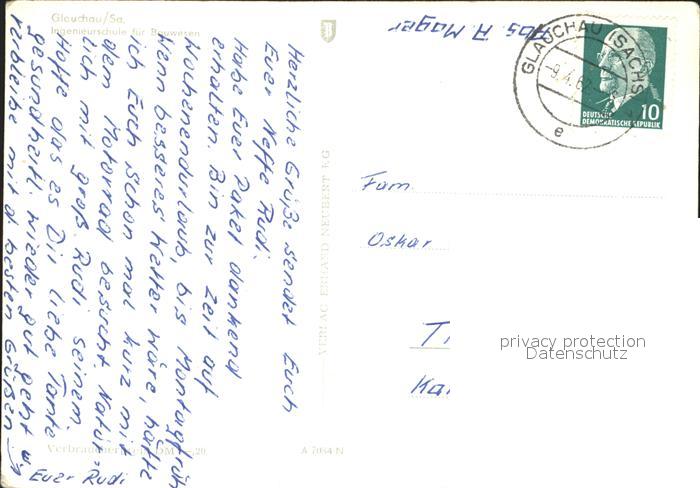 Glauchau/Sa.
Ingenieurschule für Bauwesen
Herzliche Grüße sendet Euch
Euer Neffe Rudi.
Habe Euer Paket dankend
erhalten. Bin zur Zeit auf
Wochenendurlaub, bis Montagfrüh
Wenn besseres Wetter wäre, hätte
ich Euch schon mal kurz mit
dem Motorrad besucht. Natür-
lich mit groß. Rudi seinem.
Hoffe das es Dir liebe Tante
gesundheitl. wieder gut geht u.
verbleibe mit d. besten Grüßen
Euer Rudi
Abs. R. Mager
GLAUCHAU (SACHS
-9.4.62
e
10
DEUTSCHE
DEMOKRATISCHE REPUBLIK
Fam.
Oskar
T
Ka
privacy protection
Datenschutz
VERLAG ERHARD NEUBERT KG
Verbraucherpreis DM 0,20
A 7034 N